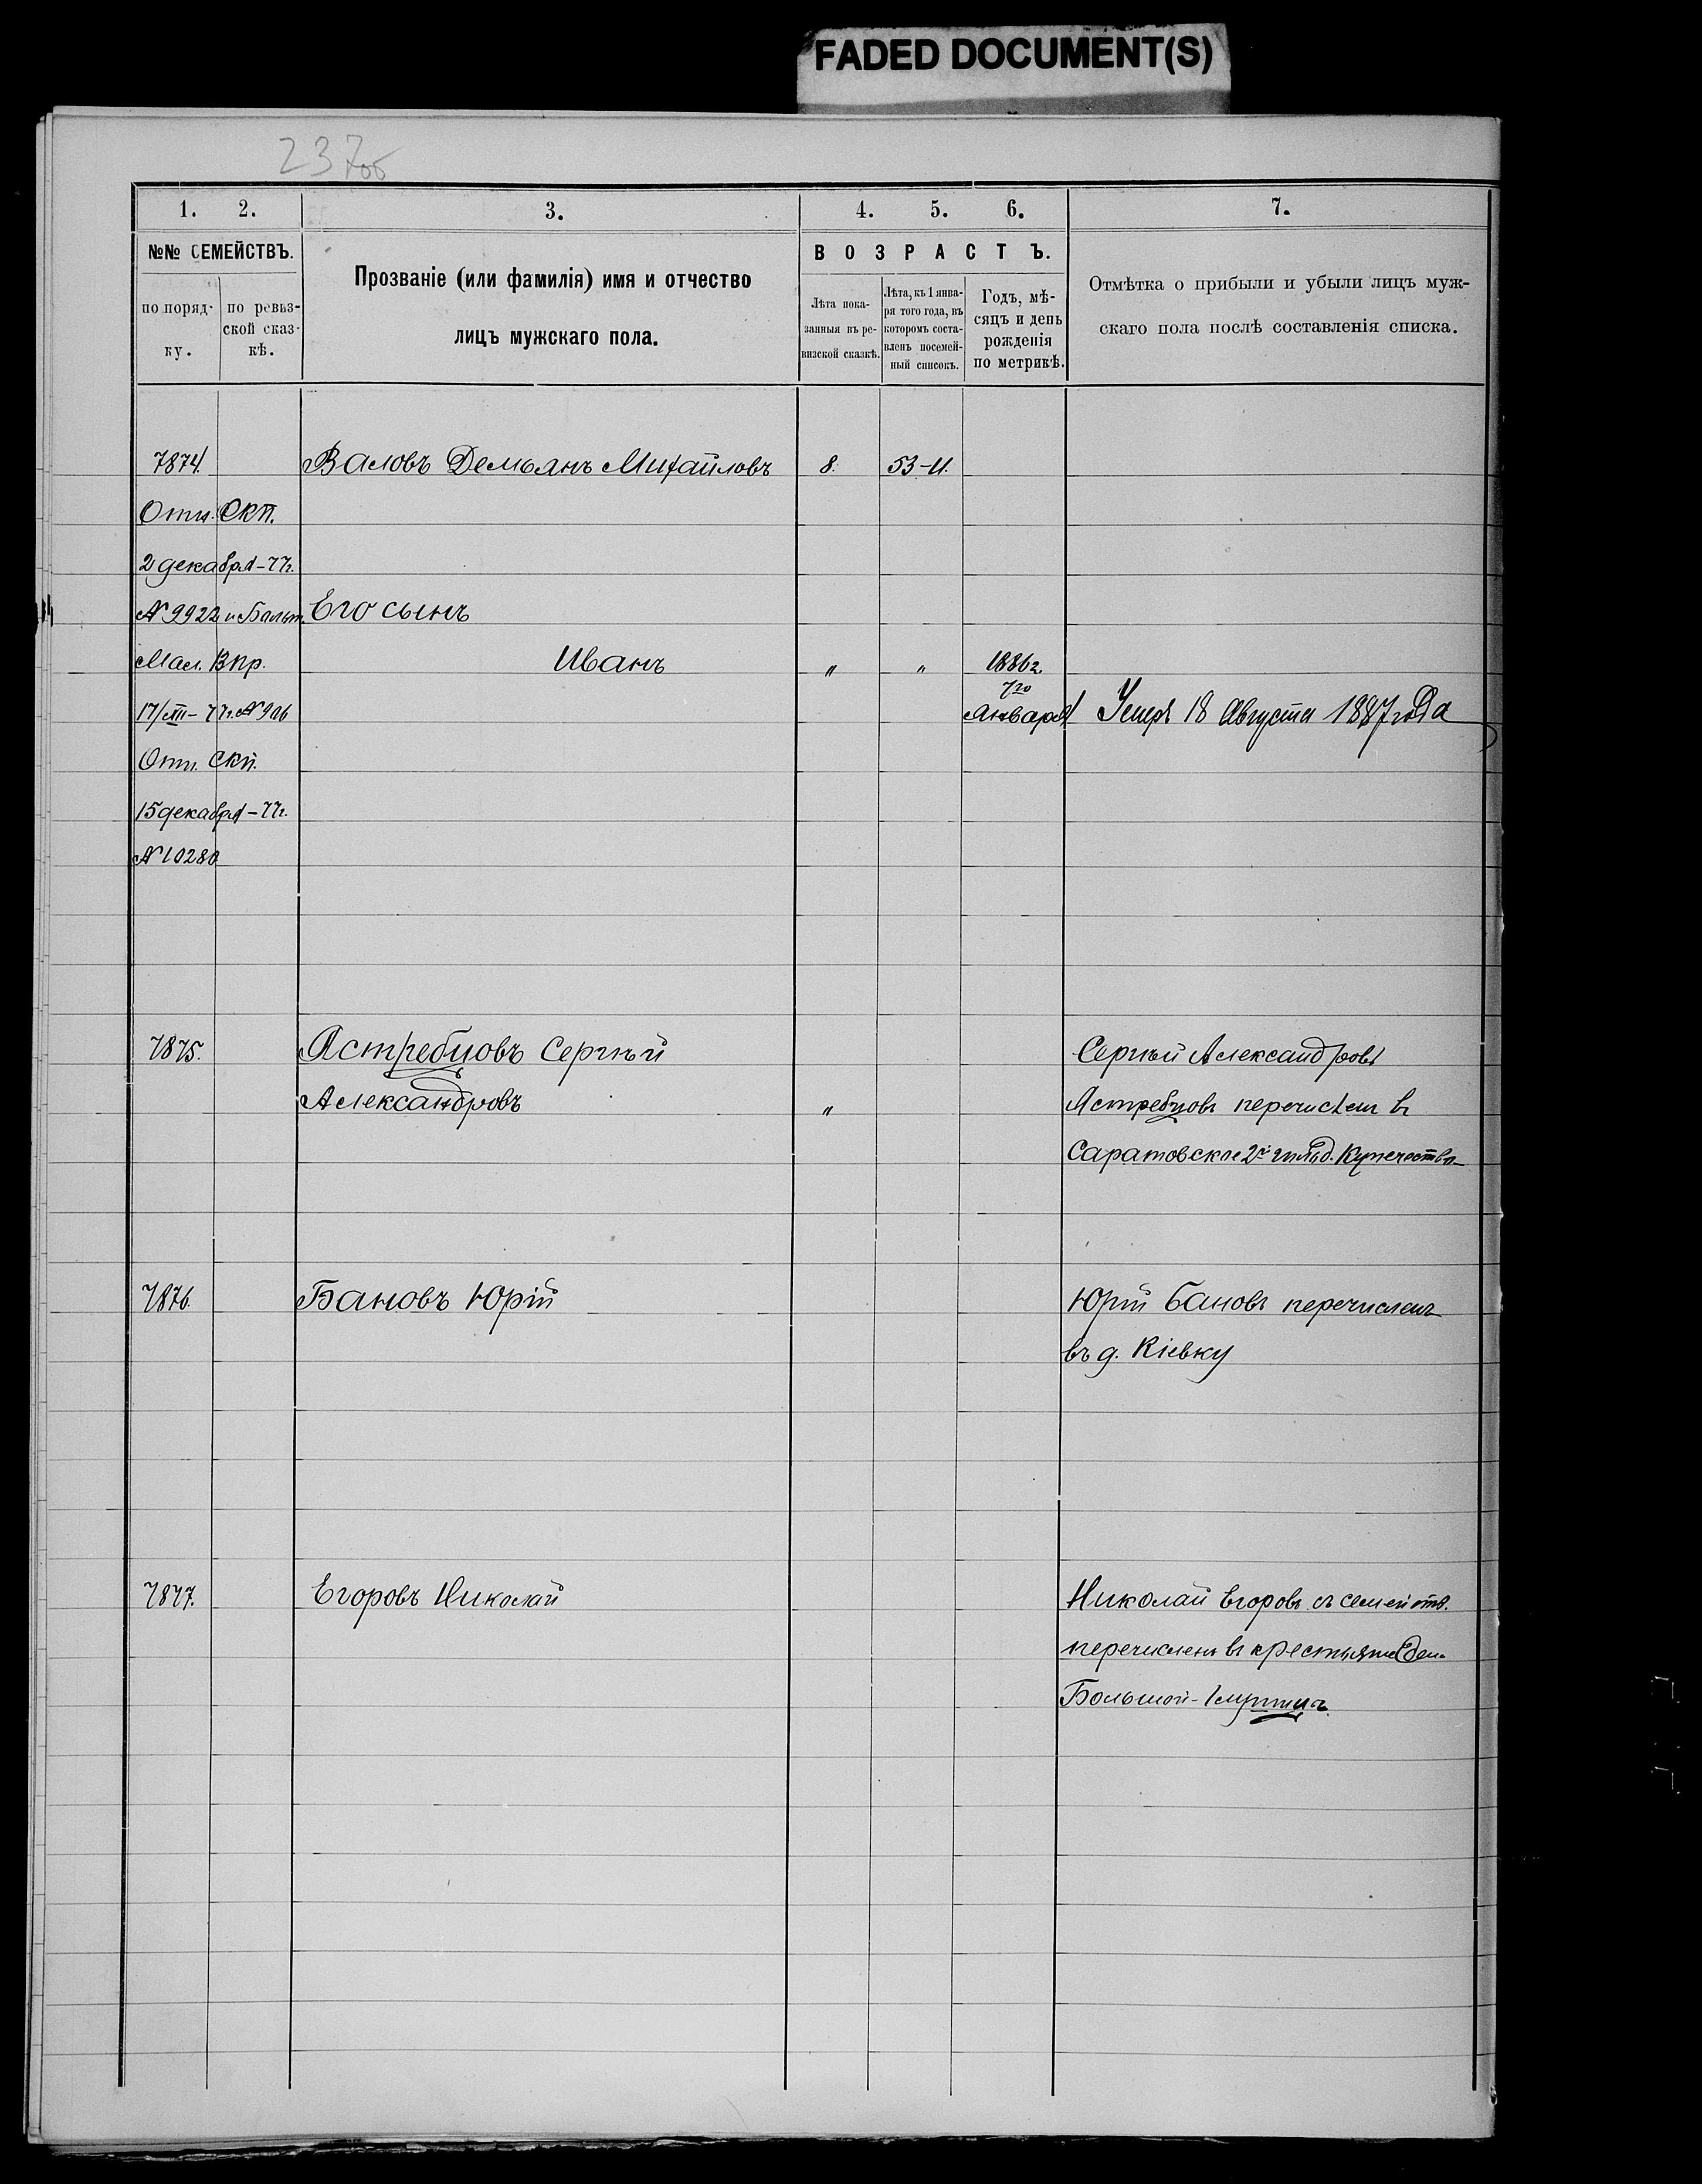 FADED DOCUMENT(S)
237об
1. 2. 3. 4. 5. 6. 7.
№№ СЕМЕЙСТВЪ.
по поряд-
ку.
по ревиз-
ской сказ-
кѣ.
Прозваніе (или фамилія) имя и отчество
лицъ мужскаго пола.
ВОЗРАСТЪ.
Лѣта пока-
занныя въ ре-
визской сказкѣ.
Лѣта, къ 1 янва-
ря того года, въ
которомъ соста-
вленъ посемей-
ный списокъ.
Годъ, мѣ-
сяцъ и день
рожденія
по метрикѣ.
Отмѣтка о прибыли и убыли лицъ муж-
скаго пола послѣ составленія списка.
7874. Валовъ Демьянъ Михайловъ 8. 53-11.
Отн. Скп.
2 декабря-77г.
№ 9922 и Его сынъ
Мал. Впр. Иванъ " " 1886г.
7го
17/XII-77г. № 906 Января Умеръ 18 Августа 1887 года
Отн. Скп.
15 декабря-77г.
№ 10280
7875. Ястребцовъ Сергѣй Сергѣй Александровъ
Александровъ " Ястребцовъ перечисленъ въ
Саратовское 2й гильд. Купечество
7876. Бановъ Юрій Юрій Бановъ перечисленъ
въ д. Кіевку
7877. Егоровъ Николай Николай Егоровъ съ семейств.
перечисленъ въ крестьяне дер.
Большой-